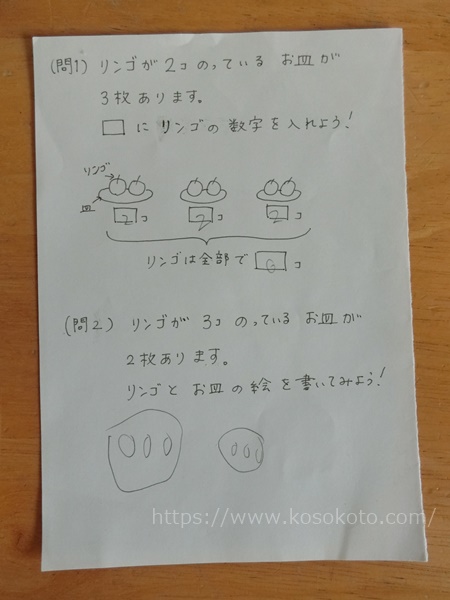 (問1) リンゴが 2コ のっている お皿が
3枚あります。
□ に リンゴの 数字を入れよう!
リンゴ
皿
2 コ 2 コ 2 コ
リンゴは全部で 6 コ
(問2) リンゴが 3コ のっている お皿が
2枚あります。
リンゴと お皿の絵を書いてみよう!
https://www.kosokoto.com/